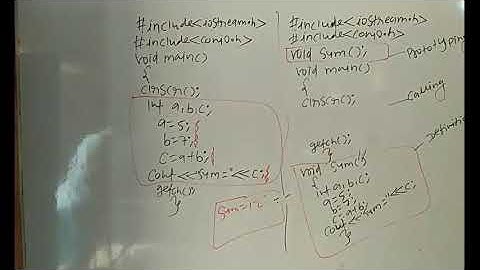 #include<iostream.h>
#include<conio.h>
void main()
{
clrscr();
int a,b,c;
a=5;
b=7;
c=a+b;
cout<<"sum="<<c;
getch();
}
Sum=12
#include<iostream.h>
#include<conio.h>
void sum(); Prototyping
void main()
{
clrscr(); calling
getch();
}
void sum() Definition
{
int a,b,c;
a=5;
b=7;
c=a+b;
cout<<"sum="<<c;
}